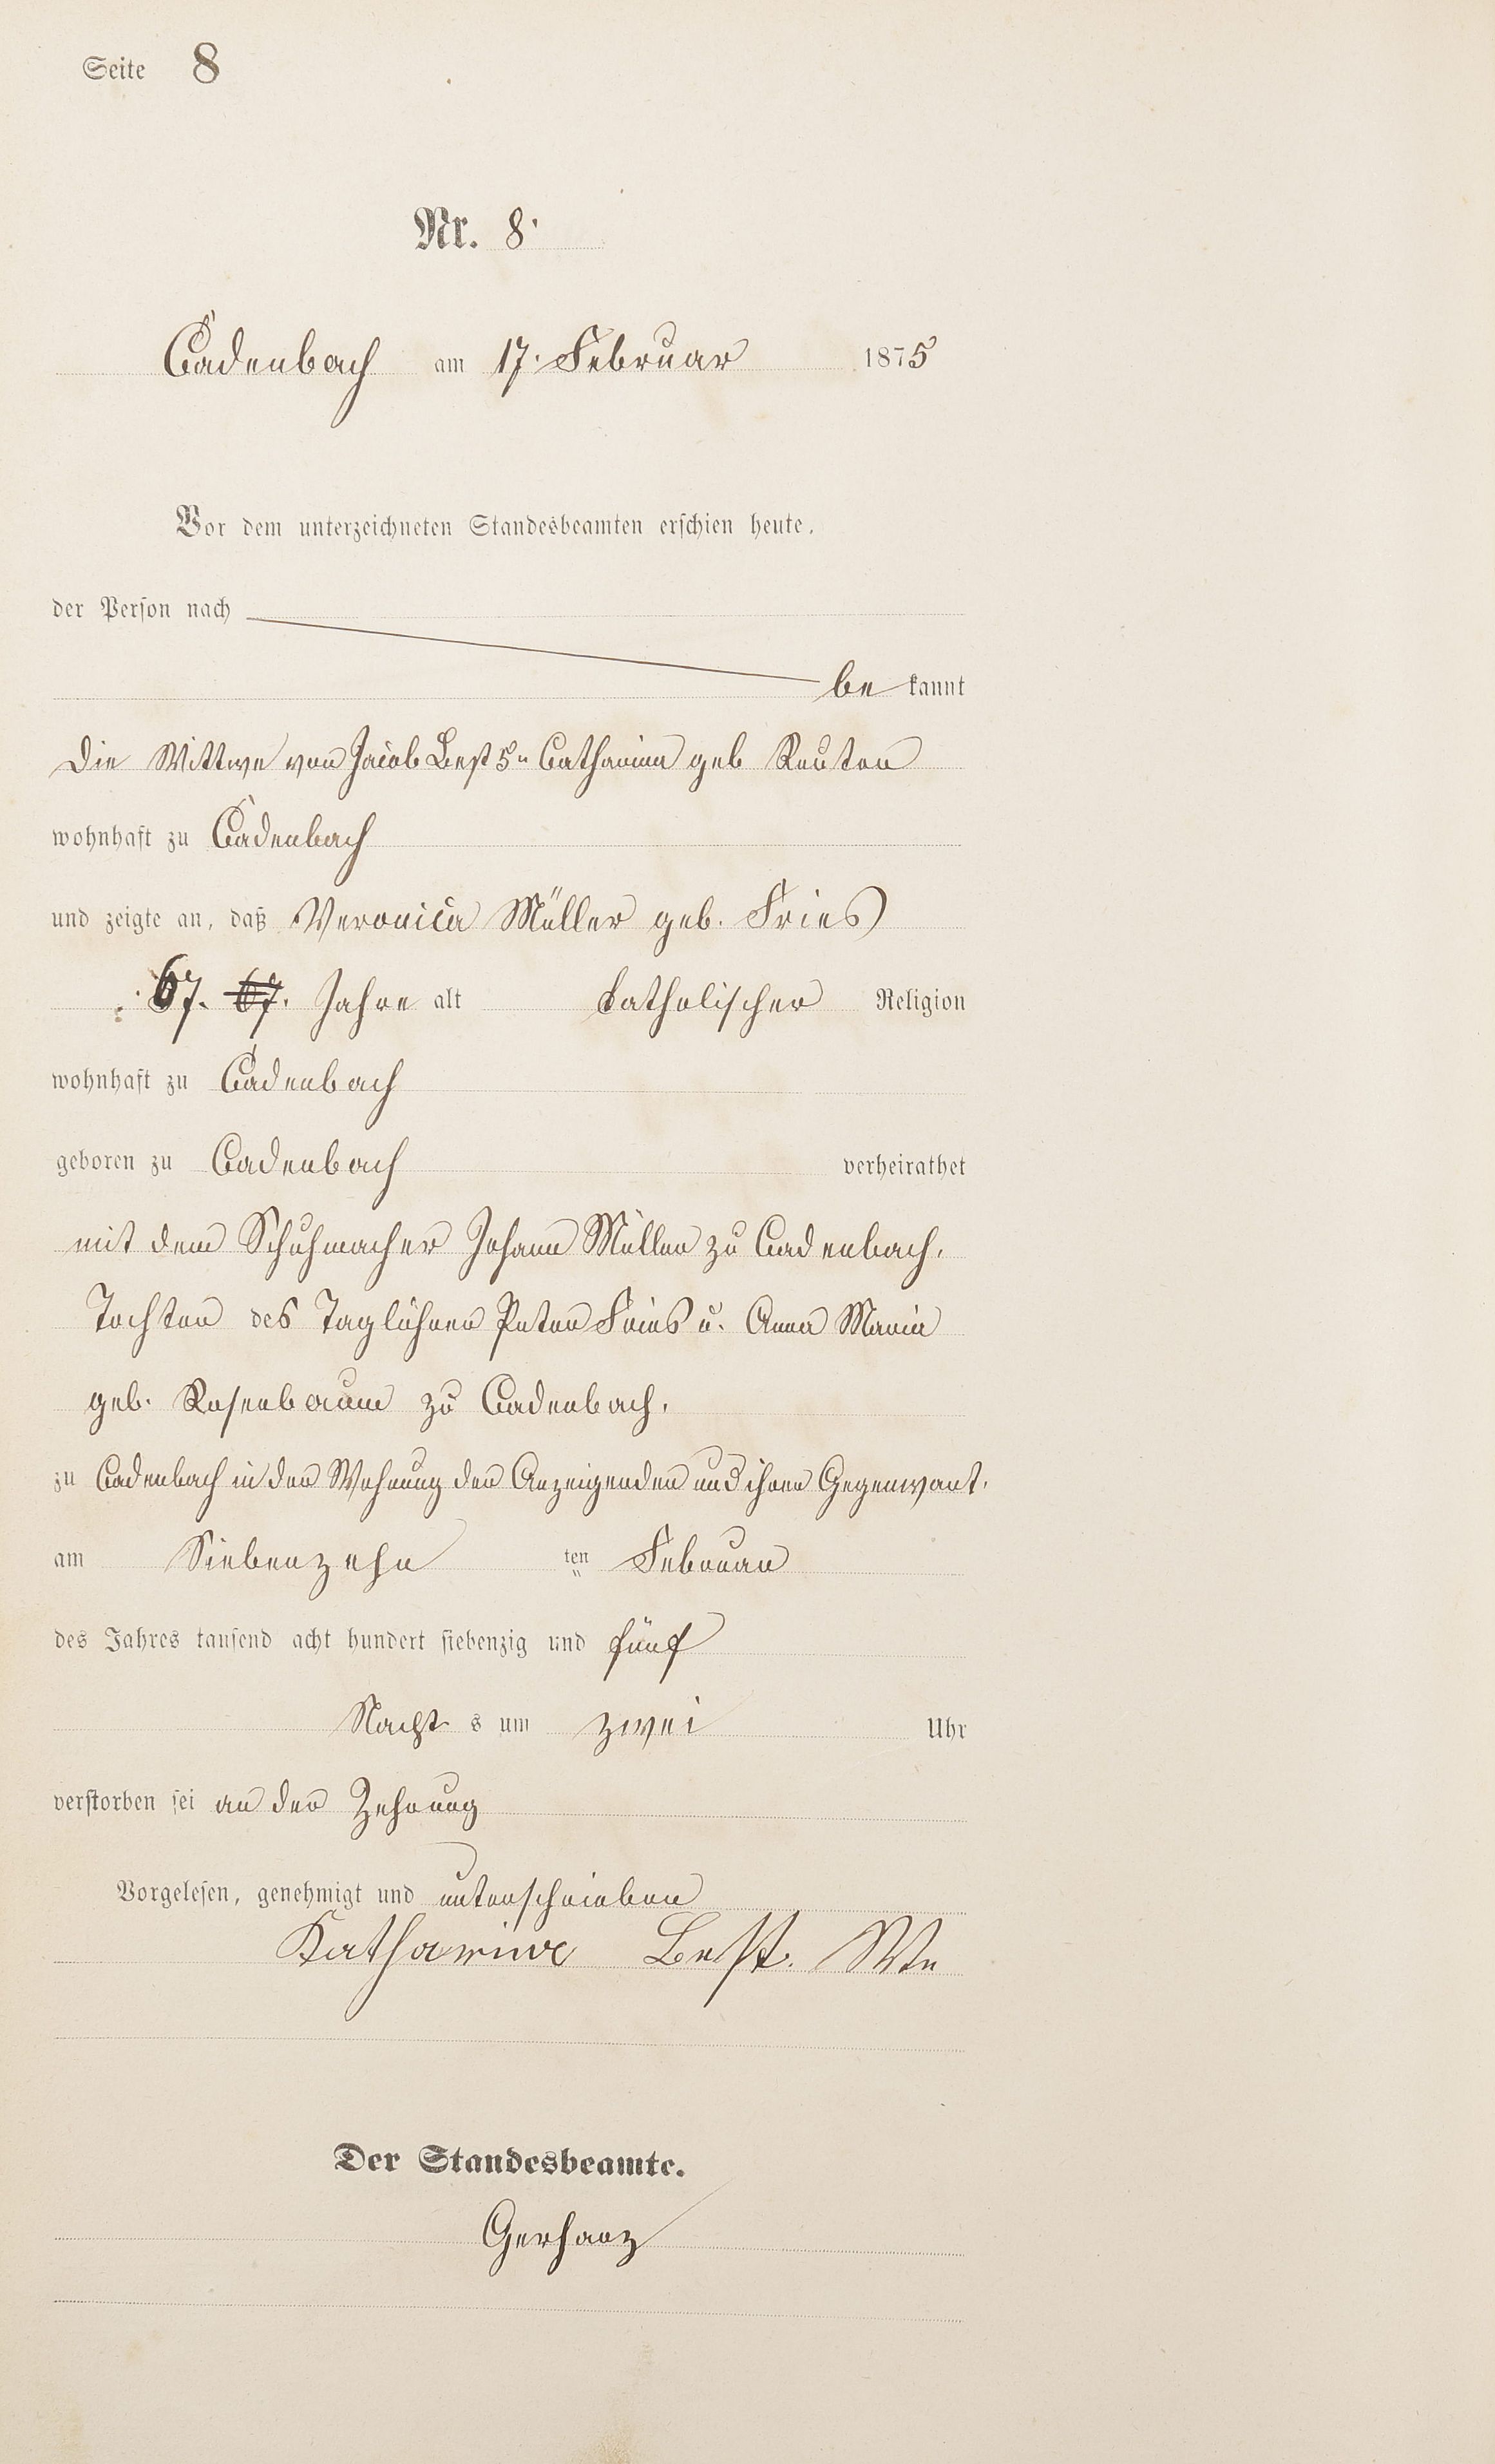 Seite 8
Nr. 8.
Cadenbach am 17. Februar 1875
Vor dem unterzeichneten Standesbeamten erschien heute,
der Person nach
be kannt
Die Wittwe von Jacob Best 5r Catharina geb Reuter
wohnhaft zu Cadenbach
und zeigte an, daß Veronica Müller geb. Fries
67. 67. Jahre alt katholischer Religion
wohnhaft zu Cadenbach
geboren zu Cadenbach verheirathet
mit dem Schuhmacher Johann Müller zu Cadenbach,
Tochter des Taglöhner Peter Fries u. Anna Maria
geb. Rosenbaum zu Cadenbach,
zu Cadenbach in der Wohnung der Anzeigenden und ihrer Gegenwart,
am Siebenzehn ten Februar
des Jahres tausend acht hundert siebenzig und fünf
Nacht s um zwei Uhr
verstorben sei an der Zehrung
Vorgelesen, genehmigt und unterschrieben
Katharina Best. We
Der Standesbeamte.
Gerharz